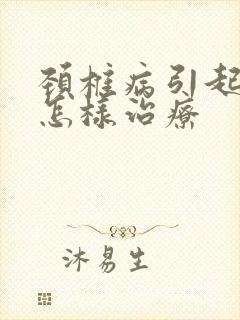 頚椎病引起
怎樣治療
沐易生